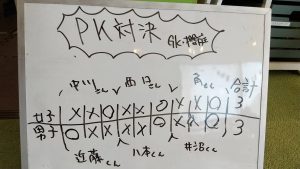 PK対決 GK:櫻庭
中川さん 西口さん 角さん 合計
女子 X X O X X O X X O 3
男子 O X X X O X X X O 3
近藤くん 八木くん 井沼くん